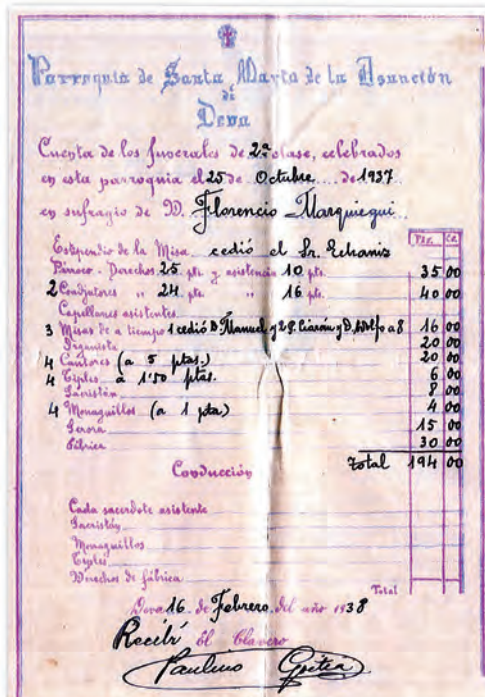 Parroquia de Santa María de la Asunción
de
Deva
Cuenta de los funerales de 2ª clase, celebrados
en esta parroquia el 25 de Octubre de 1937
en sufragio de D. Florencio Marquiegui
PTS. CS.
Estipendio de la Misa cedió el Sr. Echaniz
Párroco - Derechos 25 pts. y asistencia 10 pts. 35 00
2 Coadjutores " 24 pts. " 16 pts. 40 00
Capellanes asistentes
3 Misas de a tiempo 1 cedió D. Manuel y 2 S. Ciarán y D. a 8 16 00
Organista 20 00
4 Cantores (a 5 ptas.) 20 00
4 Tiples a 1'50 ptas. 6 00
Sacristán 8 00
4 Monaguillos (a 1 pta) 4 00
Serora 15 00
Fábrica 30 00
Total 194 00
Conducción
Cada sacerdote asistente
Sacristán
Monaguillos
Tiples
Derechos de fábrica
Total
Deva 16 de Febrero del año 1938
Recibí El Clavero
Paulino